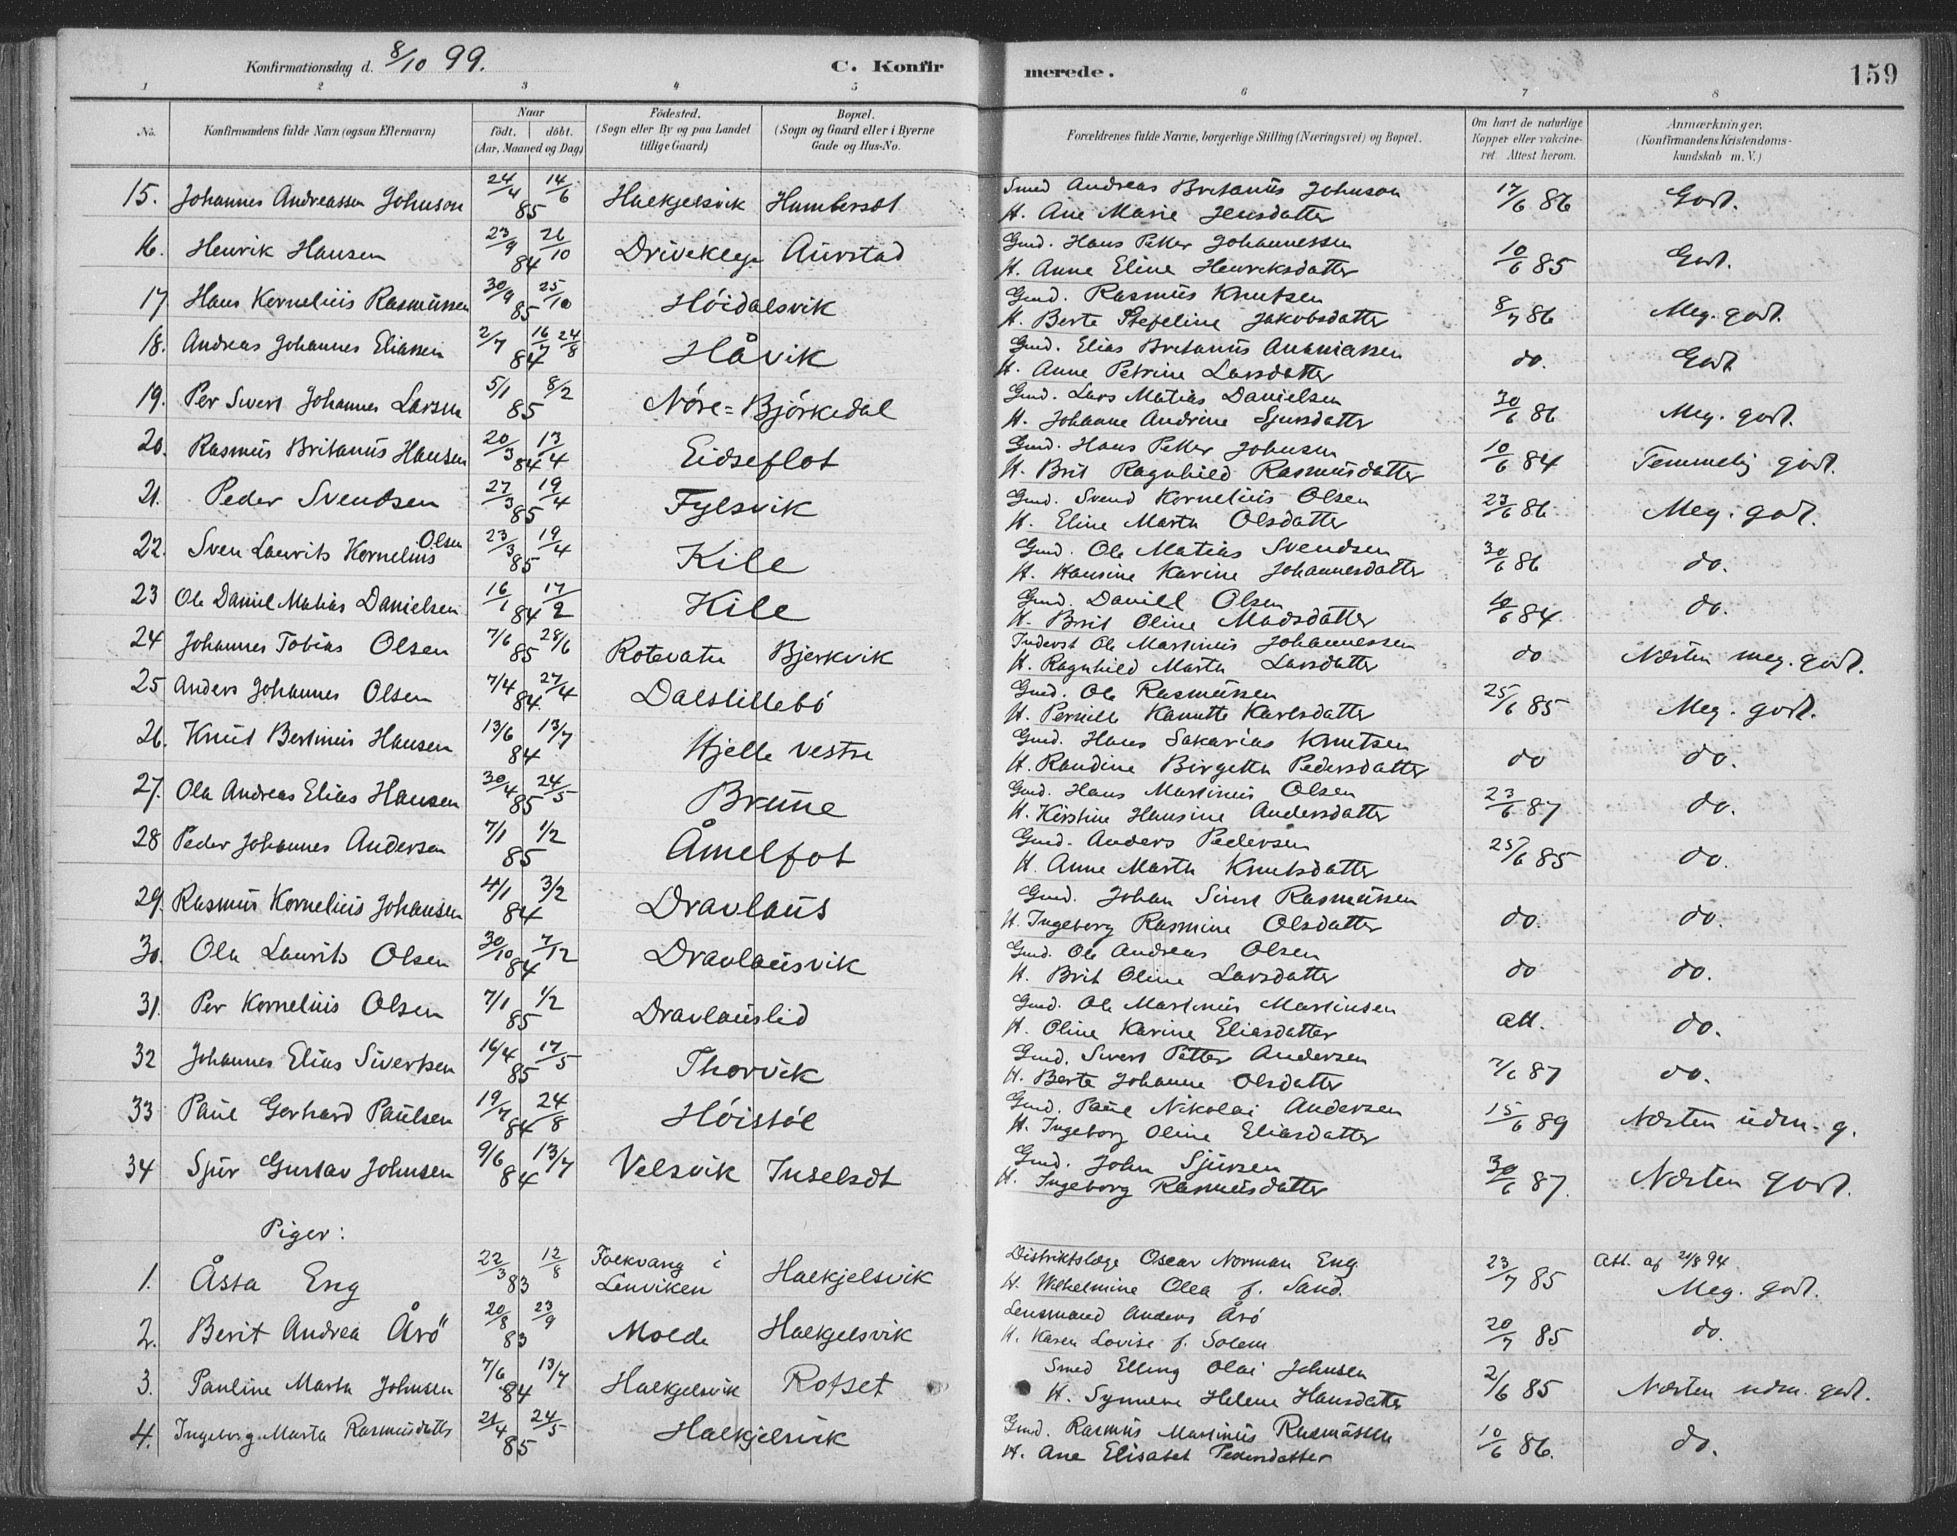 Konfirmationsdag d. 8/10 99.
C. Konfirmerede.
159
1 2 3 4 5 6 7 8
No. Konfirmandens fulde Navn (ogsaa Efternavn) Naar födt. döbt. (Aar, Maaned og Dag) Födested. (Sogn eller By og paa Landet tillige Gaard) Bopæl. (Sogn og Gaard eller i Byerne Gade og Hus-No. Forældrenes fulde Navne, borgerlige Stilling (Næringsvei) og Bopæl. Om havt de naturlige Kopper eller vakcineret. Attest herom. Anmærkninger. (Konfirmandens Kristendomskundskab m. V.)
15. Johannes Andreassen Johnson 24/4 14/6 85 Halkjelsvik Humberset Smed Andreas Britanus Johnson H. Ane Marie Jensdatter 17/6 86 Godt.
16. Henrik Hansen 23/9 26/10 84 Driveklep Aurstad Gmd. Hans Petter Johannessen H. Anne Eline Henriksdatter 10/6 85 Godt.
17. Hans Kornelius Rasmussen 30/9 25/10 85 Höidalsvik Gmd. Rasmus Knutsen H. Berte Stefeline Jakobsdatter 8/7 86 Meg. godt.
18. Andreas Johannes Eliassen 2/7 16/7 24/8 84 Håvik Gmd. Elias Britanus Ananiassen H. Anne Petrine Larsdatter do. Godt
19. Per Sivert Johannes Larsen 5/1 8/2 85 Nöre=Björkedal Gmd. Lars Matias Danielsen H. Johanne Andrine Sjursdatter 30/6 86 Meg. godt.
20. Rasmus Britanus Hansen 20/3 13/4 84 Eidseflot Gmd. Hans Petter Johnsen H. Brit Ragnhild Rasmusdatter 10/6 84 Temmelig godt.
21. Peder Svendsen 27/3 19/4 85 Fylsvik Gmd. Svend Kornelius Olsen H. Eline Marta Olsdatter 23/6 86 Meg. godt.
22. Sven Laurits Kornelius Olsen 23/3 19/4 85 Kile Gmd. Ole Matias Svendsen H. Hansine Karine Johannesdatter 30/6 86 do.
23 Ole Daniel Matias Danielsen 16/1 17/2 84 Kile Gmd. Daniel Olsen H. Brit Oline Madsdatter 10/6 84. do.
24 Johannes Tobias Olsen 7/6 28/6 85 Rotevatn Bjerkvik Inderst Ole Martinus Johannessen H. Ragnhild Marta Larsdatter do Næsten meg. godt.
25 Anders Johannes Olsen 7/4 27/4 84 Dalslillebö Gmd. Ole Rasmussen H. Pernille Kanutte Karlsdatter 25/6 85 Meg. godt.
26. Knut Bertinus Hansen 13/6 13/7 84 Hjelle vestre Gmd. Hans Sakarias Knutsen H. Randine Birgitta Pedersdatter do do.
27. Ola Andreas Elias Hansen 30/4 24/5 85 Brune Gmd. Hans Martinus Olsen H. Kirstine Hansine Andersdatter 23/6 87 do.
28 Peder Johannes Andersen 7/1 1/2 85 Åmelfot Gmd. Anders Pedersen H. Anne Marta Knutsdatter 25/6 85 do.
29. Rasmus Kornelius Johansen 4/1 3/2 84 Dravlaus Gmd. Johan Sivert Rasmussen H. Ingeborg Rasmine Olsdatter do. do.
30. Ola Laurits Olsen 30/10 7/12 84 Dravlausvik Gmd. Ole Andreas Olsen H. Brit Oline Larsdatter do do.
31. Per Kornelius Olsen 7/1 1/2 85 Dravlauslid Gmd. Ole Martinus Martinsen H. Oline Karine Eliasdatter att. do.
32 Johannes Elias Sivertsen 16/4 17/5 85 Thorvik Gmd. Sivert Petter Andersen H. Berte Johanne Olsdatter 7/6 87 do.
33 Paul Gerhard Paulsen 19/7 24/8 84 Höistöl Gmd. Paul Nikolai Andersen H. Ingeborg Oline Eliasdatter 15/6 89 Næsten udm. g.
34 Sjur Gustav Johnsen 9/6 13/7 84 Velsvik Inselset Gmd. John Sjursen H. Ingeborg Rasmusdatter 30/6 87. Næsten godt.
Piger:
1. Åsta Eng 22/3 12/8 83 Folkvang i Lenviken Halkjelsvik Distriktslæge Oscar Norman Eng H. Wilhelmine Olea f. Sand. 23/7 85 Att. af 21/8 94. Meg. godt.
2. Berit Andrea Årö 20/8 23/9 83 Molde Halkjelsvik Lensmand Anders Årö H. Karen Lovise f. Solem 20/7 85 do.
3. Pauline Marta Johnsen 7/6 13/7 84 Halkjelsvik Rotset Smed Elling Olai Johnsen H. Synneve Helene Hansdatter 2/6 85 Næsten udm. godt.
4. Ingeborg Marta Rasmusdatter 21/4 24/5 85 Halkjelsvik Gmd. Rasmus Martinus Rasmussen H. Ane Elisabet Pedersdatter 10/6 86. do.